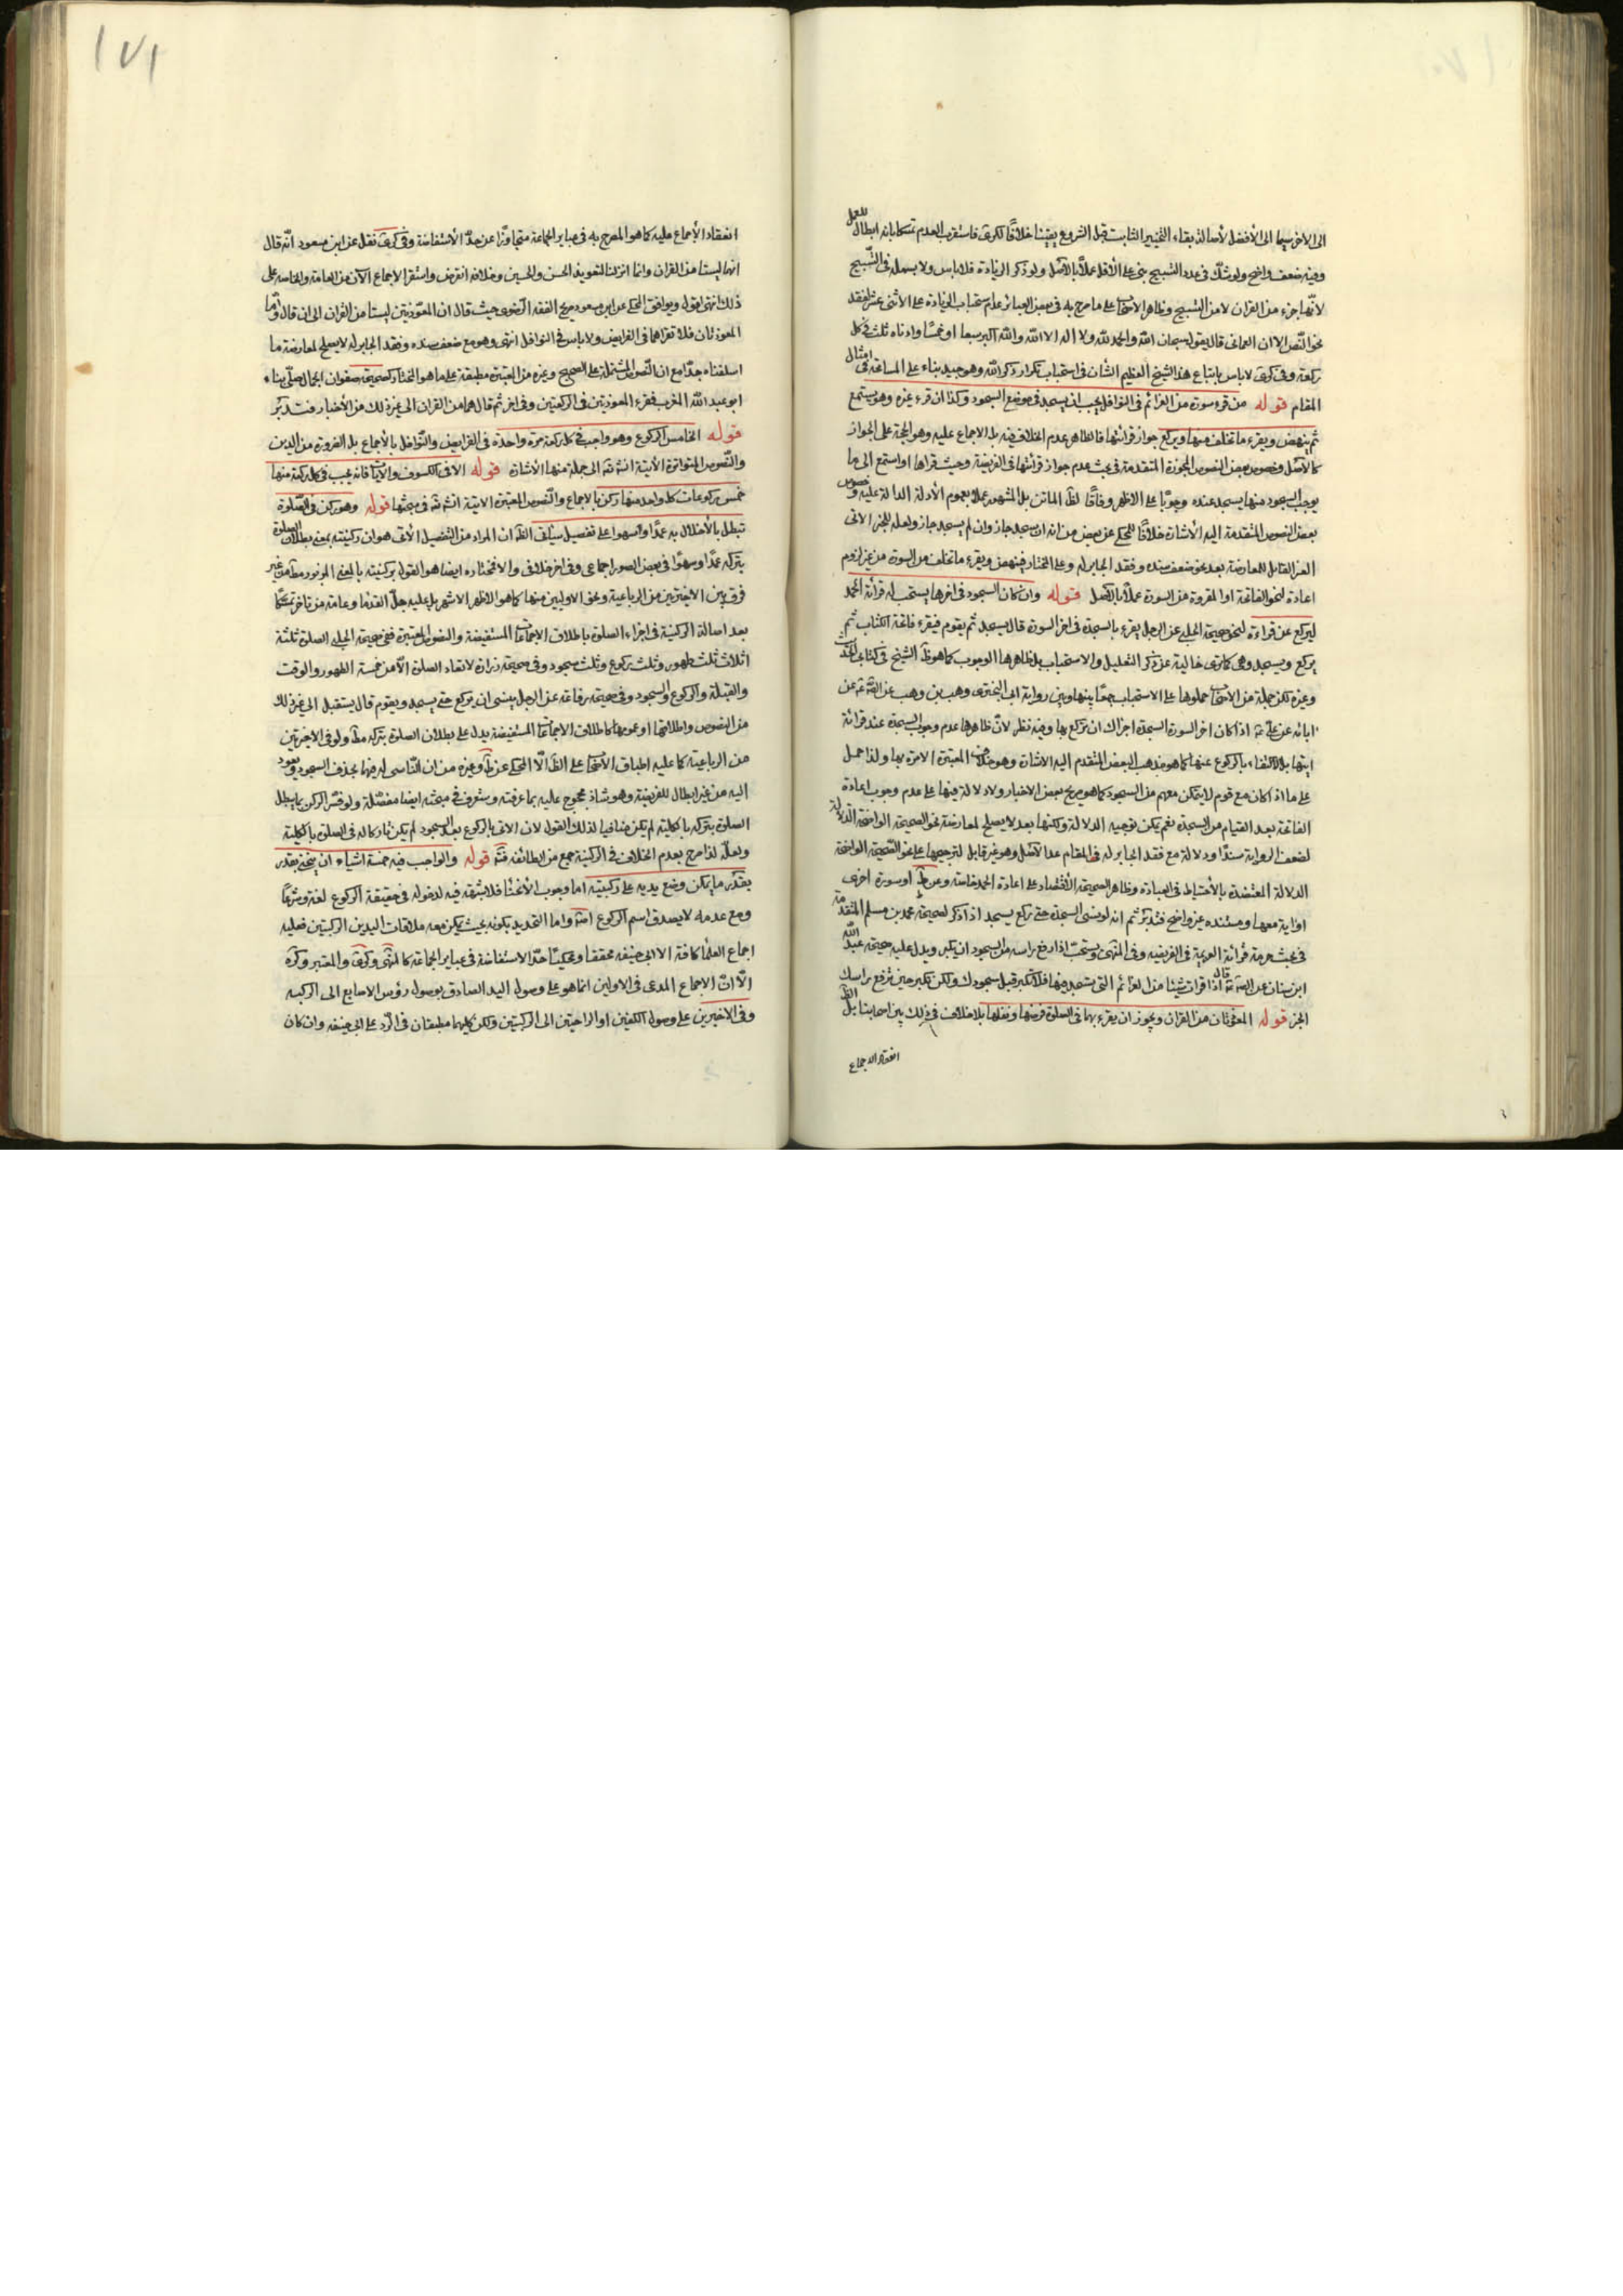 الى الاخر سيما الى الأفضل لأصالة بقاء التخيير الثابت قبل الشروع يقينا خلافًا لكرى فاستقرب العدم تمسكا بانه ابطال للعمل
وفيه ضعف واضح ولو شكّ فى عدد التسبيح بنى على الأقل عملاً بالأصل ولو ذكر الزيادة فلا باس ولا بسملة فى التّسبيح
لانّها جزء من القران لا من التسبيح وظاهر الاصحاب على ما صرح به فى بعض العبائر عدم استحباب الزيادة على الاثنى عشر لفقد
نحو النّص الا ان العمانى قال يقول سبحان الله والحمد لله ولا اله الا الله والله اكبر سبعا او خمسًا وادناه ثلث فى كل
ركعة وفى كرى لا باس باتباع هذا الشيخ العظيم الشأن فى استحباب تكرار ذكر الله وهو جيد بناء على المسامحة فى امثال
المقام قوله من قرء سورة من العزائم فى النوافل يجب ان يسجد فى موضع السجود وكذا ان قرء غيره وهو يستمع
ثم ينهض ويقرء ما تخلف منها ويركع جواز قرائتها فالظاهر عدم الخلاف فيه بل الاجماع عليه وهو الحجة على الجواز
كالأصل وخصوص بعض النصوص المجوزة المتقدمة فى بحث عدم جواز قرائتها فى الفريضة وحيث قراها او استمع الى ما
يوجب السجود منها يسجد عنده وجوبًا على الاظهر وفاقًا لظ الماتن بل المشهور عملا بعموم الأدلة الدالة عليه وخصوص
بعض النصوص المتقدمة اليه الأشارة خلافًا للمحكى عن بعض من انه ان سجد جاز وان لم يسجد جاز ولعله للخبر الاتى
الغير القابل للمعارضة بعد نحو ضعف سنده وفقد الجابر له وعلى المختار فينهض ويقرء ما تخلف من السورة من غير لزوم
اعادة لنحو الفاتحة او المقروة من السورة عملًا بالأصل قوله وان كان السجود فى اخرها يستحب له قرائة الحمد
ليركع عن قراءة لنحو صحيحة الحلبى عن الرجل يقرء بالسجدة فى اخر السورة قال يسجد ثم يقوم فيقرء فاتحة الكتاب ثم
يركع ويسجد وهى كما ترى خالية عن ذكر التعليل والاستحباب بل ظاهرها الوجوب كما هو ظ الشيخ فى كتابى الحديث
وغيره لكن جملة من الاصحاب حملوها على الاستحباب جمعًا بينها وبين رواية ابى البخترى وهب بن وهب عن الصادق عن
ابائه عن على ع اذا كان اخر السورة السجدة اجزاك ان تركع بها وفيه نظر لانّ ظاهرها عدم وجوب السجدة عند قرائة
ايتها بل الاكتفاء بالركوع عنها كما هو مذهب البعض المتقدم اليه الاشارة وهو خلاف المعتبرة الامرة بها ولذا حمل
على ما اذا كان مع قوم لا يتمكن معهم من السجود كما هو صريح بعض الاخبار ولا دلالة فيها على عدم وجوب اعادة
الفاتحة بعد القيام من السجدة نعم يمكن توجيه الدلالة ولكنها بعد لا يصلح لمعارضة نحو الصحيحة الواضحة الدلالة
لضعف الرواية سندًا ودلالة مع فقد الجابر له فى المقام عدا الأصل وهو غير قابل لترجيحها على نحو الصحيحة الواضحة
الدلالة المعتضدة بالأحتياط فى العبادة وظاهر الصحيحة الأقتصار على اعادة الحمد خاصة وعن ط او سورة اخرى
او اية معها ومستنده غير واضح فتدبّر ثم انه لو نسى السجدة حتى ركع يسجد اذا ذكر لصحيحة محمد بن مسلم المتقدمة
فى بحث حرمة قرائة العزيمة فى الفريضة وفى المنتهى ويستحبّ اذا رفع راسه من السجود ان يكبر ويدل عليه صحيحة عبد الله
ابن سنان عن الصادق ع قال اذا قرات شيئا من العزائم التى يسجد فيها فلا تكبر قبل سجودك ولكن تكبر حين ترفع راسك
الخبر قوله المعوذتان من القران ويجوز ان يقرء بهما فى الصلوة فرضها ونفلها بلا خلاف فى ذلك بين اصحابنا بل الظ
انعقاد الاجماع
١٧١
انعقاد الأجماع عليه كما هو المصرح به فى عباير الجماعة متجاوزًا عن حدّ الأستفاضة وفى كرى نقل عن ابن مسعود انّه قال
انهما ليستا من القران وانما انزلتا لتعويذ الحسن والحسين وخلافه انقرض واستقر الاجماع الآن من العامة والخاصة على
ذلك انتهى اقول ويوافق المحكى عن ابن مسعود صريح الفقه الرّضوى حيث قال ان المعوّذتين ليستا من القران الى ان قال وامّا
المعوذتان فلا تقراهما فى الفرايض ولا باس فى النوافل انتهى وهو مع ضعف سنده وفقد الجابر له لا يصلح لمعارضة ما
اسلفناه جدّا مع ان النّصوص المشتملة على الصحيح وغيره من المعتبرة مطبقة على ما هو المختار كصحيحة صفوان الجمال صلّى بنا
ابو عبد الله المغرب فقرء المعوذتين فى الركعتين وفى اخر ثم قال هما من القران الى غير ذلك من الأخبار فتدبّر
قوله الخامس الركوع وهو واجب فى كل ركعة مرة واحدة فى الفرايض والنّوافل بالأجماع بل الضرورة من الدين
والنّصوص المتواترة الأتية انشاء الله الى جملة منها الأشارة قوله الا فى الكسوف والايات فانه يجب فى كل ركعة منها
خمس ركوعات كل واحد منها ركن بالاجماع والنّصوص المعتبرة الاتية انشاء الله فى مبحثها قوله وهو ركن فى الصّلوة
تبطل بالأخلال به عمدًا وسهوا على تفصيل سيأتى الظ ان المراد من التفصيل الأتى هو ان ركنيته بمعنى بطلان الصلوة
بتركه عمدًا وسهوًا فى بعض الصور اجماعى وفى اخر خلافى والمختار ايضا هو القول بركنيته بالمعنى المزبور مطلقا من غير
فرق بين الاخيرتين من الرباعية وغير الاوليين منها كما هو الاظهر الاشهر بل عليه جلّ القدماء وعامة من تاخر تمسكا
بعد اصالة الركنية فى اجزاء الصلوة باطلاق الاجماعات المستفيضة والنصوص المعتبرة ففى صحيحة الحلبى الصلوة ثلثة
اثلاث ثلث طهور وثلث ركوع وثلث سجود وفى صحيحة زرارة لا تعاد الصلوة الّا من خمسة الطهور والوقت
والقبلة والركوع والسجود وفى صحيحة رفاعة عن الرجل ينسى ان يركع حتى يسجد ويقوم قال يستقبل الى غير ذلك
من النصوص واطلاقها او عمومها كاطلاق الاجماعات المستفيضة يدل على بطلان الصلوة بتركه مطلقا ولو فى الاخيرتين
من الرباعية كما عليه اطباق الأصحاب على الظ الّا المحكى عن ط وغيره من ان النّاسى له فيها يحذف السجود ويعود
اليه من غير ابطال للفريضة وهو شاذ محجوج عليه بما عرفته وستعرف فى مبحثه ايضا مفصّلة ولو فسّر الركن بما يبطل
الصلوة بتركه بالكلية لم يكن منافيا لذلك القول لان الاتى بالركوع بعد السجود لم يكن تاركا له فى الصلوة بالكلية
ولعلّه لذا صرح بعدم الخلاف فى الركنية جمع من الطائفة قوله والواجب فيه خمسة اشياء ان ينحنى بقدر
ما يمكن وضع يديه على ركبتيه اما وجوب الأنحناء فلا شبهة فيه لدخوله فى حقيقة الركوع لغة وشرعًا
ومع عدمه لا يصدق اسم الركوع واما التحديد بكونه بحيث يمكن معه ملاقات اليدين الركبتين فعليه
اجماع العلماء كافة الا ابى حنيفه محققا ومحكيًا حدّ الاستفاضة فى عباير الجماعة كالمنتهى وكرى والمعتبر وكره
الّا انّ الاجماع المدعى فى الاولين انما هو على وصول اليد الصادق بوصول رؤس الاصابع الى الركبه
وفى الاخيرين على وصول الكفين او الراحتين الى الركبتين ولكن كليهما مطبقان فى الرّد على ابى حنيفه وان كان